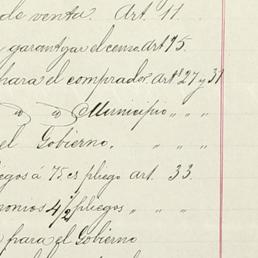 de venta. Art. 11.
garantizar el censo Art 75.
para el comprador. Arts 27 y 31
" " Municipio " " "
el Gobierno. " " "
pliegos á 75 cs pliego art. 33.
monios 4 1/2 pliegos " " "
para el Gobierno